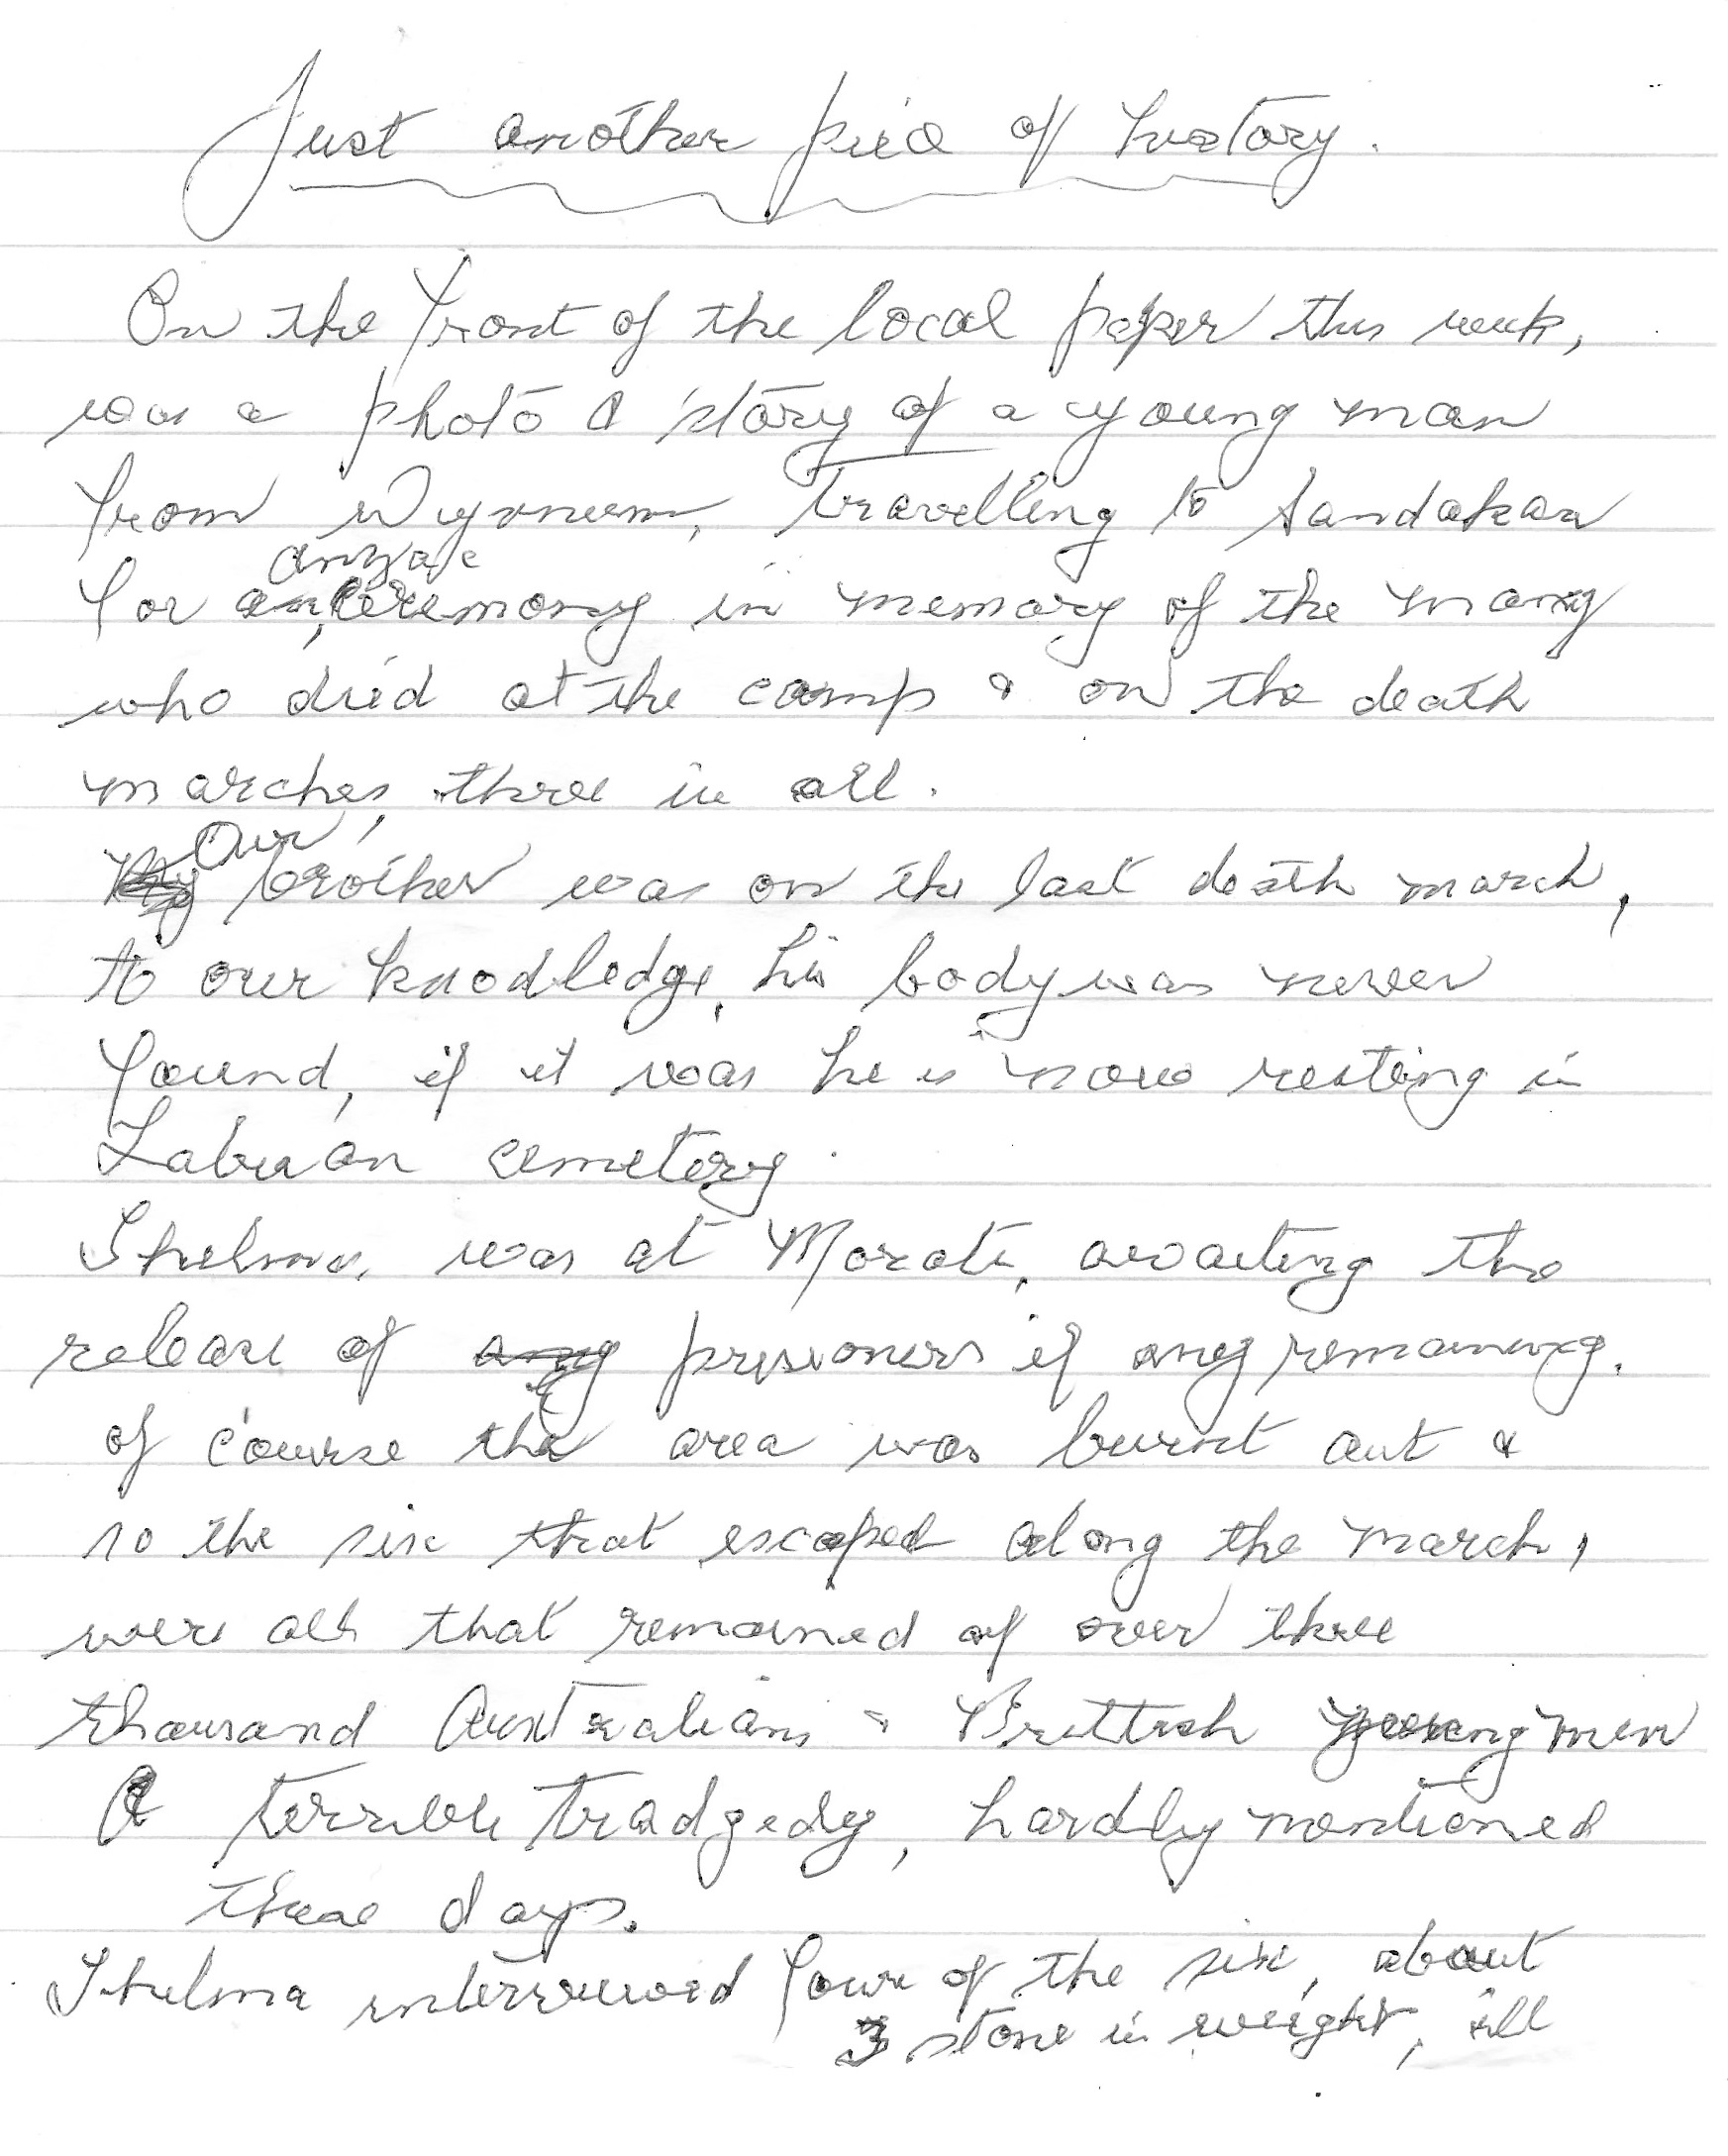 Just another piece of history.
On the front of the local paper this week,
was a photo & story of a young man
from Wynnum, travelling to Sandakan
anzac
for an, ceremony in memory of the many
who died at the camp & on the death
marches, three in all.
Our
My brother was on the last death march,
to our knodledge, his body was never
found, if it was he is now resting in
Labuan cemetery.
Thelma, was at Morati, awaiting the
release of any prisioners if any remaining.
of course the area was burnt out &
so the six that escaped along the march,
were all that remained of over three
thousand Australians & Brittish young men
A terrible tradgedy, hardly mentioned
these days.
Thelma interviewed four of the six, about
3 stone in weight, ill